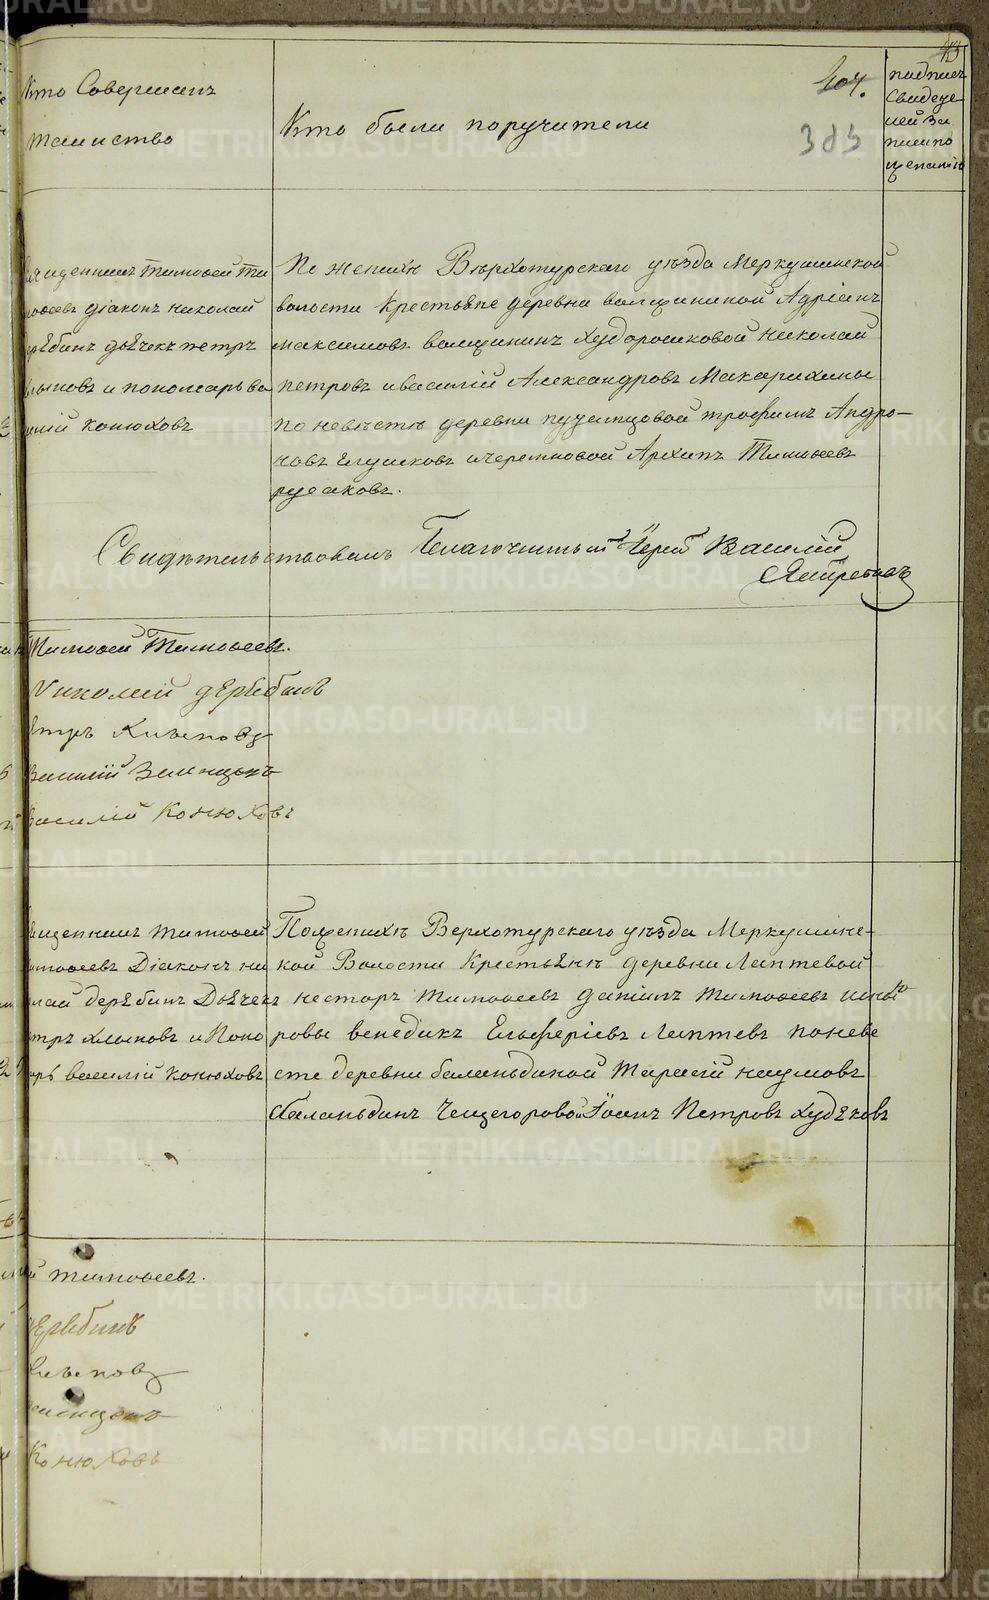 Кто Совершалъ
таинство
Кто были поручители
404.
385
43
подпись
Свидете
лей За
писи по
желанію
священникъ тимовей Ти
мовеевъ діаконъ николай
дерѣбинъ дьѣчекъ петръ
хлыновъ и пономарь ва
силій конюховъ
По женихѣ Верхотурскаго уѣзда Меркушинской
волости Крестьяне деревни вамщининой Адріанъ
максимовъ вамщининъ Худорошковой Николай
петровъ и василій Александровъ Макарихины
по невѣстѣ деревни пузельцовой трофимъ Андро-
новъ Глушковъ и черемновой Архипъ Тимовеевъ
русаковъ.
Свидѣтельствовалъ Благочинный Іерей Василій
Тимовей Тимовеевъ.
Николай дерѣбинъ
Петръ Хлыновъ
Василій
Василій Конюховъ
священникъ тимовей
тимовеевъ Діаконъ ни
колай дерѣбинъ Дьѣчекъ
петръ хлыновъ и Поно
марь василій конюховъ
По женихѣ Верхотурскаго уѣзда Меркушинс-
кой Волости Крестьянѣ деревни Лаптевой
несторъ тимовеевъ даніилъ тимовеевъ
венедикъ Елыферіевъ Лаптевъ поневе
сте деревни баландиной Тарасій наумовъ
баландинъ Чещегоровой Іоанъ Петровъ худѣковъ
тимовеевъ.
дерѣбинъ
Хлыновъ
Конюховъ
METRIKI.GASO-URAL.RU